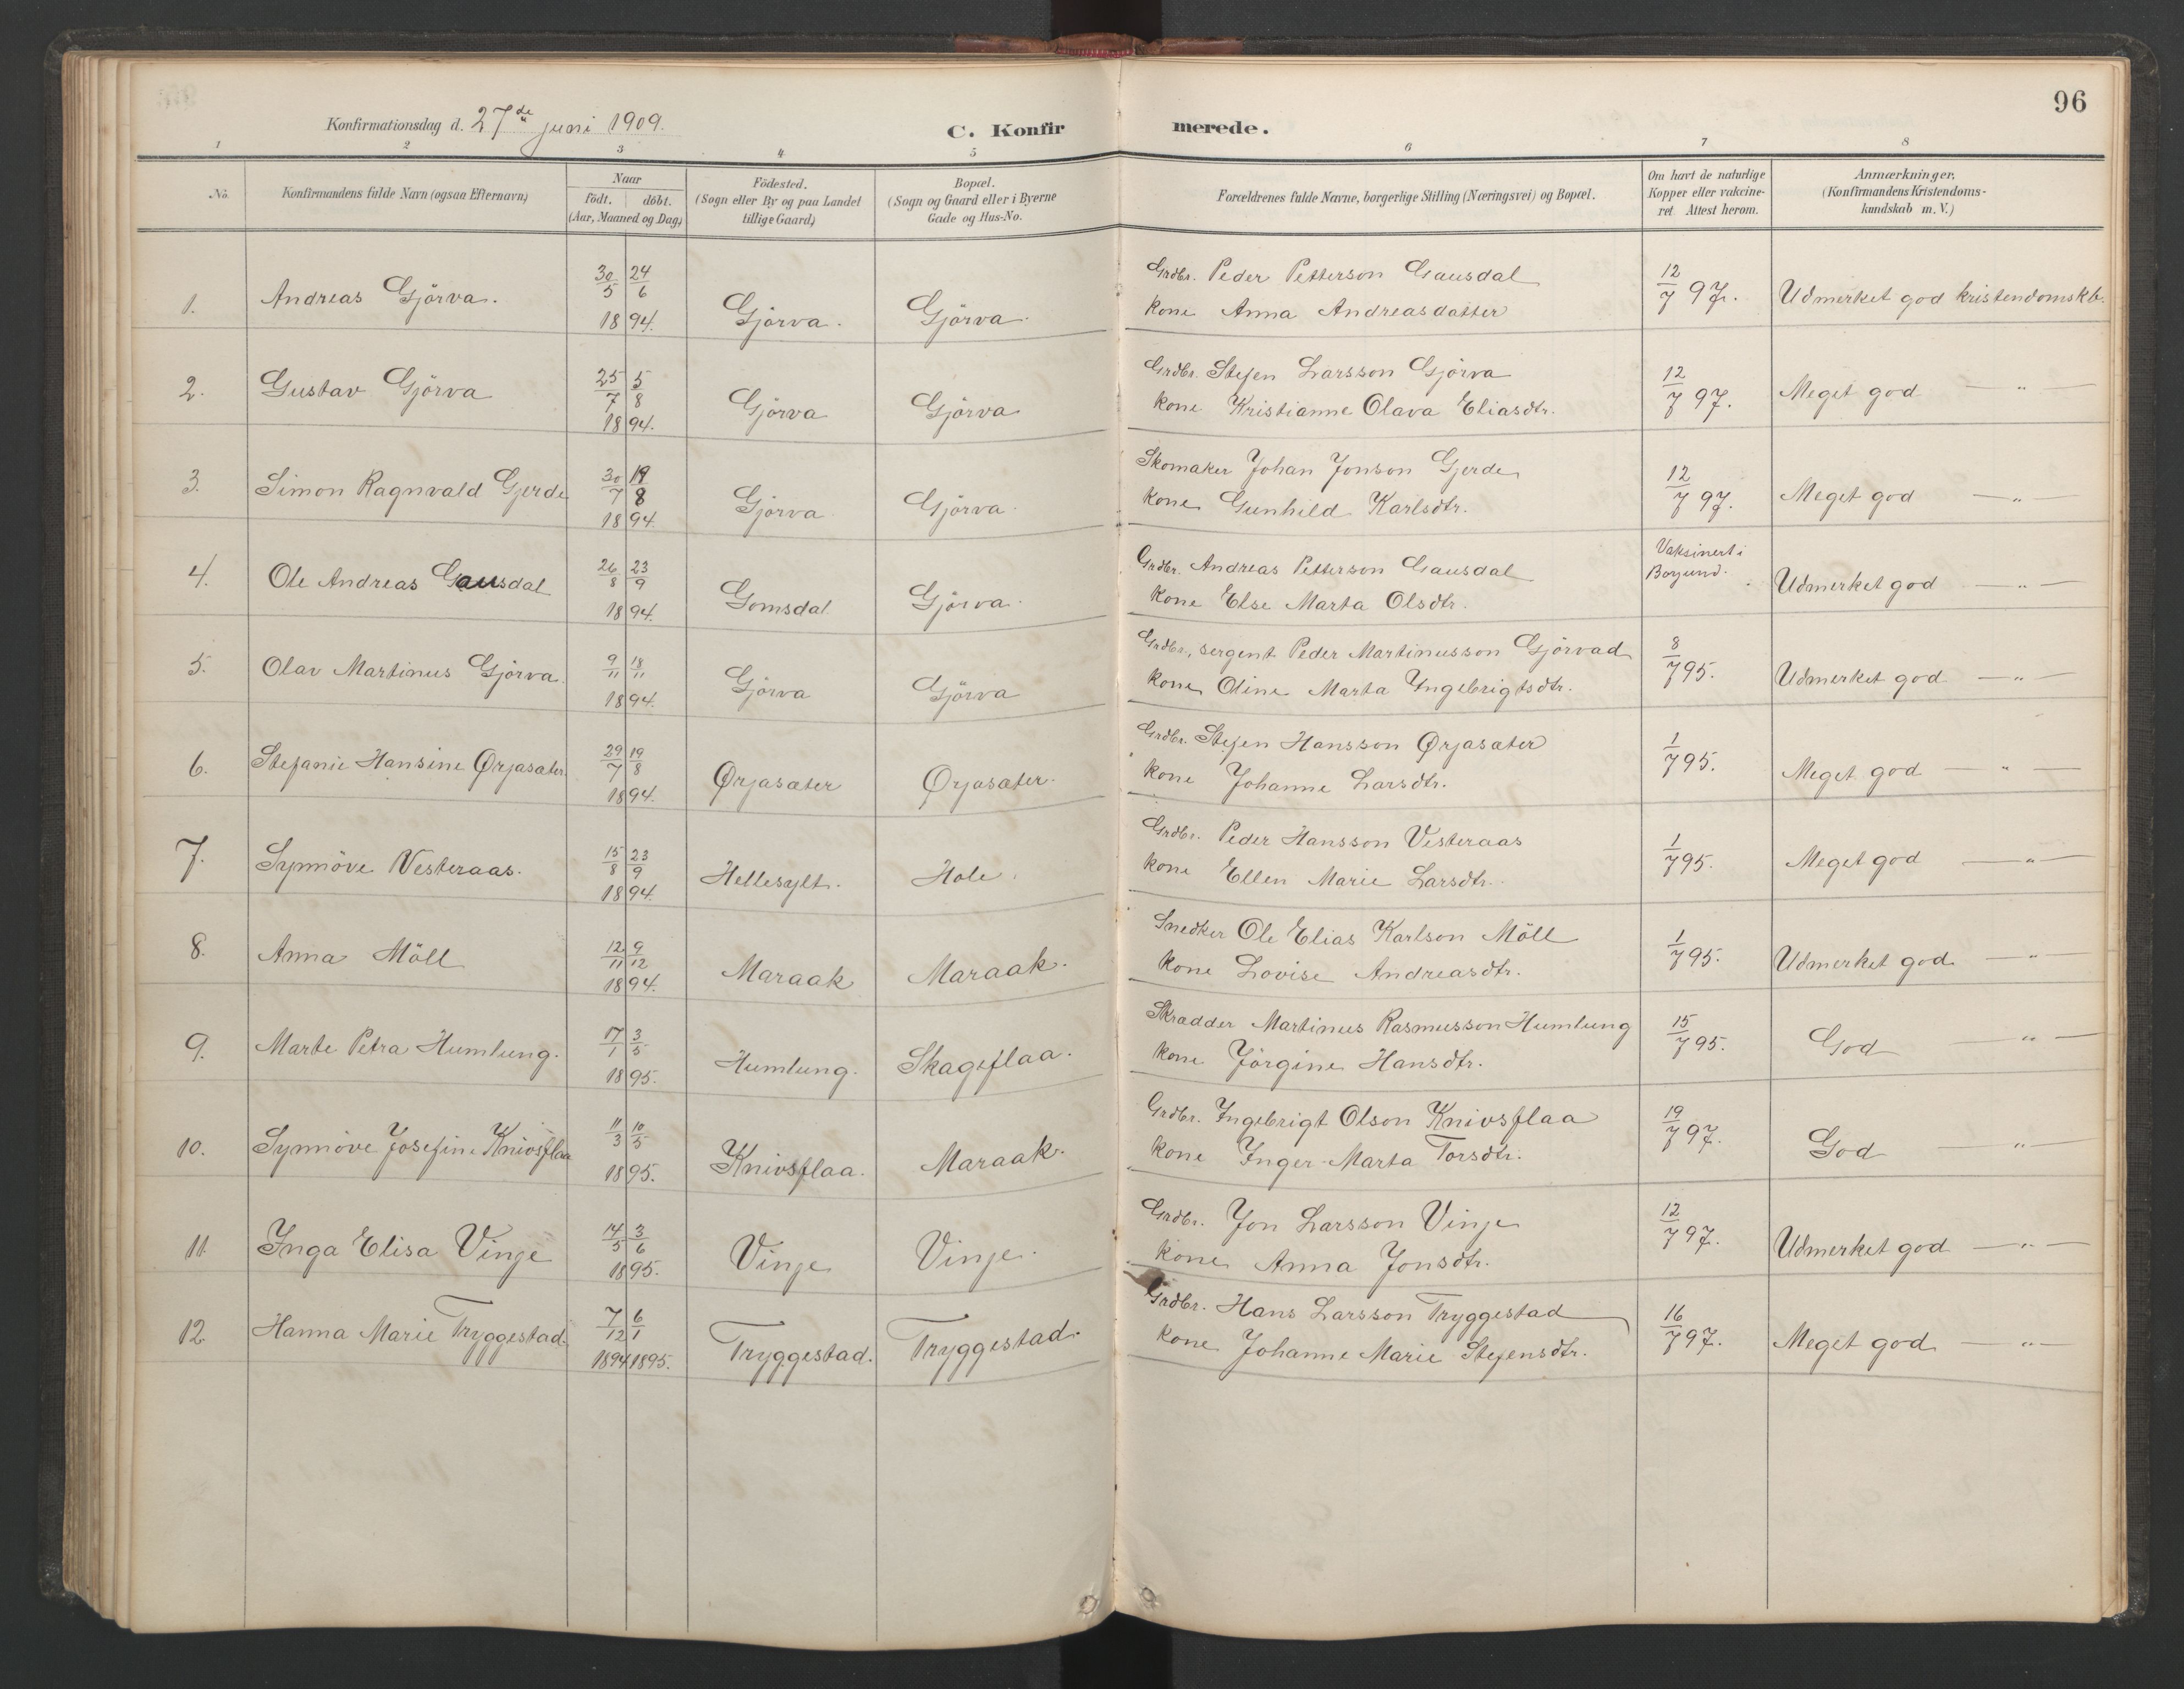 96
Konfirmationsdag d. 27de juni 1909.
C. Konfirmerede.
1 2 3 4 5 6 7 8
No.
Konfirmandens fulde Navn (ogsaa Efternavn)
Naar
födt. döbt.
(Aar, Maaned og Dag)
Födested.
(Sogn eller By og paa Landet
tillige Gaard)
Bopæl.
(Sogn og Gaard eller i Byerne
Gade og Hus-No.
Forældrenes fulde Navne, borgerlige Stilling (Næringsvei) og Bopæl.
Om havt de naturlige
Kopper eller vakcine-
ret. Attest herom.
Anmærkninger.
(Konfirmandens Kristendoms-
kundskab m. V.)
1. Andreas Gjörva. 30/5 24/6 1894. Gjörva. Gjörva.
Grdbr. Peder Petterson Gausdal
kone Anna Andreasdatter
12/7 97. Udmerket god kristendomskb.
2. Gustav Gjörva 25/7 5/8 1894. Gjörva Gjörva
Grdbr. Stefen Larsson Gjörva
kone Kristianne Olava Eliasdtr.
12/7 97. Meget god — „ —
3. Simon Ragnvald Gjerde 30/7 19/8 1894. Gjörva Gjörva.
Skomaker Johan Jonson Gjerde
kone Gunhild Karlsdtr.
12/7 97. Meget god — „ —
4. Ole Andreas Gausdal 26/8 23/9 1894. Gomsdal Gjörva.
Grdbr. Andreas Petterson Gausdal
kone Else Marta Olsdtr.
Vaksinert i
Borgund. Udmerket god — „ —
5. Olav Martinus Gjörva. 9/11 18/11 1894. Gjörva Gjörva
Grdbr., sergent Peder Martinusson Gjörvad
kone Oline Marta Yngebrigtsdtr.
8/7 95. Udmerket god — „ —
6. Stefanie Hansine Ørjasæter. 29/7 19/8 1894. Ørjasæter Ørjasæter.
Grdbr. Stefen Hansson Ørjasæter
kone Johanne Larsdtr.
1/7 95. Meget god — „ —
7. Synnöve Vesteraas. 15/8 23/9 1894. Hellesylt. Hole.
Grdbr. Peder Hansson Vesteraas
kone Ellen Marie Larsdtr.
1/7 95. Meget god — „ —
8. Anna Möll 12/11 9/12 1894. Maraak Maraak.
Snedker Ole Elias Karlson Möll
kone Lovise Andreasdtr.
1/7 95. Udmerket god — „ —
9. Marte Petra Humlung. 17/1 3/5 1895. Humlung. Skageflaa.
Skrædder Martinus Rasmusson Humlung
kone Jörgine Hansdtr.
15/7 95. God — „ —
10. Synnöve Josefine Knivsflaa 11/3 10/5 1895. Knivsflaa. Maraak.
Grdbr. Ingebrigt Olson Knivsflaa
kone Inger Marta Torsdtr.
19/7 97. God „ —
11. Inga Elisa Vinje 14/5 3/6 1895. Vinje Vinje.
Grdbr. Jon Larsson Vinje
kone Anna Jonsdtr.
12/7 97. Udmerket god — „ —
12. Hanna Marie Tryggestad. 7/12 6/1 1894 1895. Tryggestad. Tryggestad.
Grdbr. Hans Larsson Tryggestad
kone Johanne Marie Stefensdtr.
16/7 97. Meget god — „ —